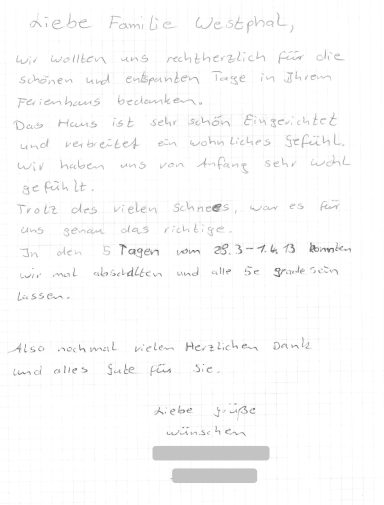 Liebe Familie Westphal,
wir wollten uns rechtherzlich für die
schönen und entspannten Tage in Ihrem
Ferienhaus bedanken.
Das Haus ist sehr schön Eingerichtet
und verbreitet ein wohnliches Gefühl.
Wir haben uns von Anfang sehr wohl
gefühlt.
Trotz des vielen Schnees, war es für
uns genau das richtige.
In den 5 Tagen vom 28.3-1.4.13 konnten
wir mal abschalten und alle 5e grade sein
lassen.
Also nochmal vielen Herzlichen Dank
und alles Gute für Sie.
Liebe grüße
wünschen